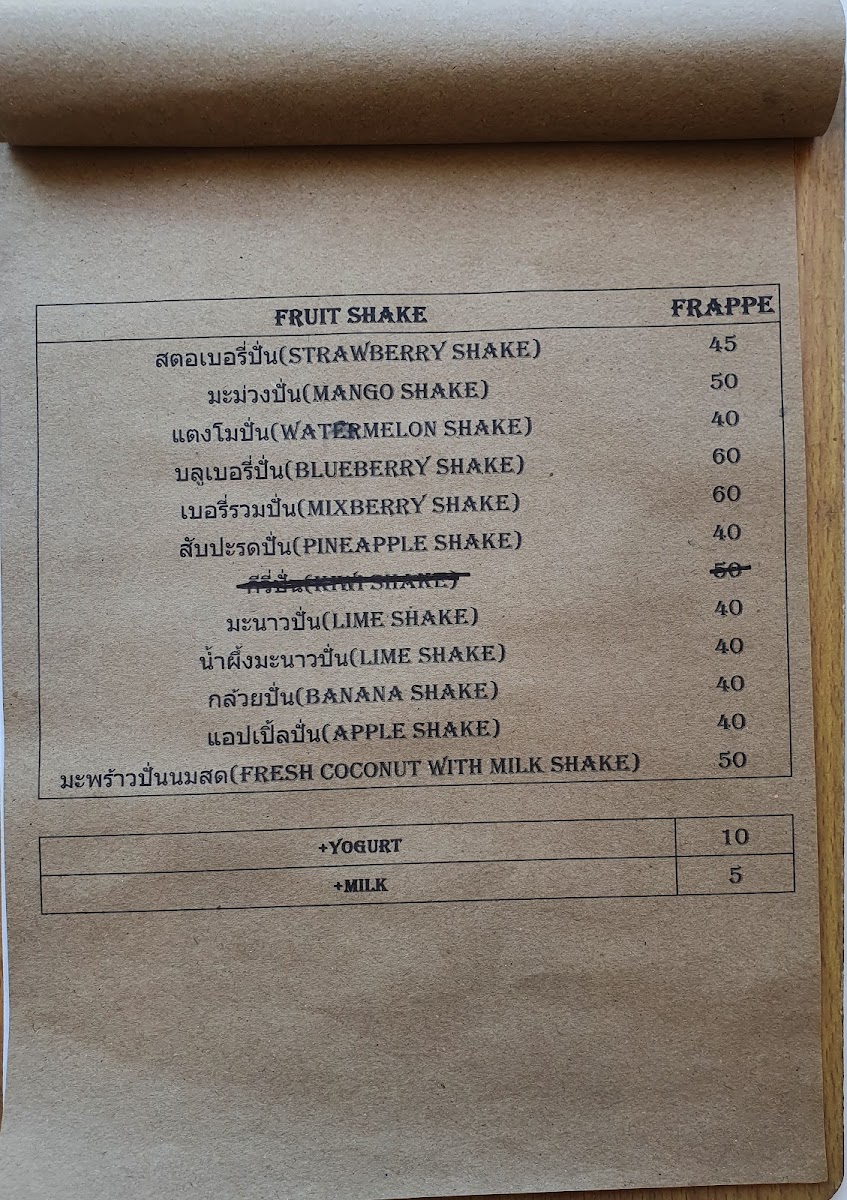 FRUIT SHAKE FRAPPE
สตอเบอรี่ปั่น(STRAWBERRY SHAKE) 45
มะม่วงปั่น(MANGO SHAKE) 50
แตงโมปั่น(WATERMELON SHAKE) 40
บลูเบอรี่ปั่น(BLUEBERRY SHAKE) 60
เบอรี่รวมปั่น(MIXBERRY SHAKE) 60
สับปะรดปั่น(PINEAPPLE SHAKE) 40
กีวี่ปั่น(KIWI SHAKE) 50
มะนาวปั่น(LIME SHAKE) 40
น้ำผึ้งมะนาวปั่น(LIME SHAKE) 40
กล้วยปั่น(BANANA SHAKE) 40
แอปเปิ้ลปั่น(APPLE SHAKE) 40
มะพร้าวปั่นนมสด(FRESH COCONUT WITH MILK SHAKE) 50
+YOGURT 10
+MILK 5